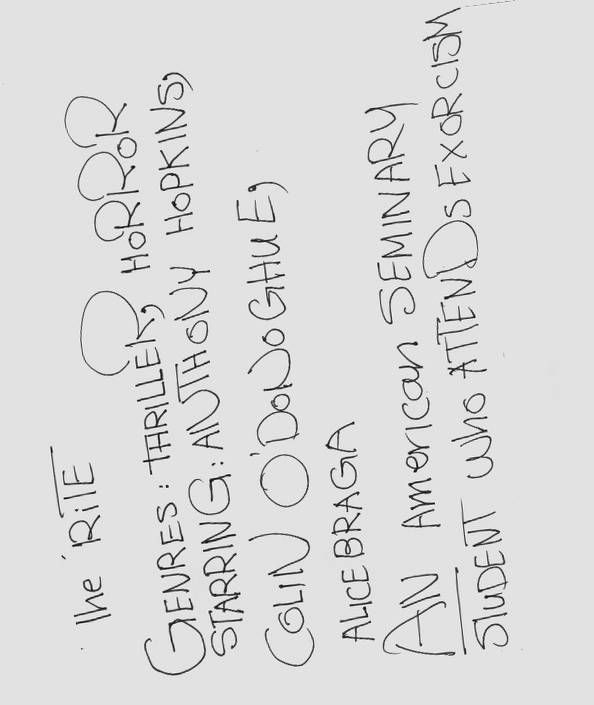 The RiTE
GENRES: THRILLER, HORROR
STARRING: ANTHONY HOPKINS,
COLIN O'DONOGHUE,
ALICE BRAGA
AN American SEMINARY
STUDENT who ATTENDS EXORCISM